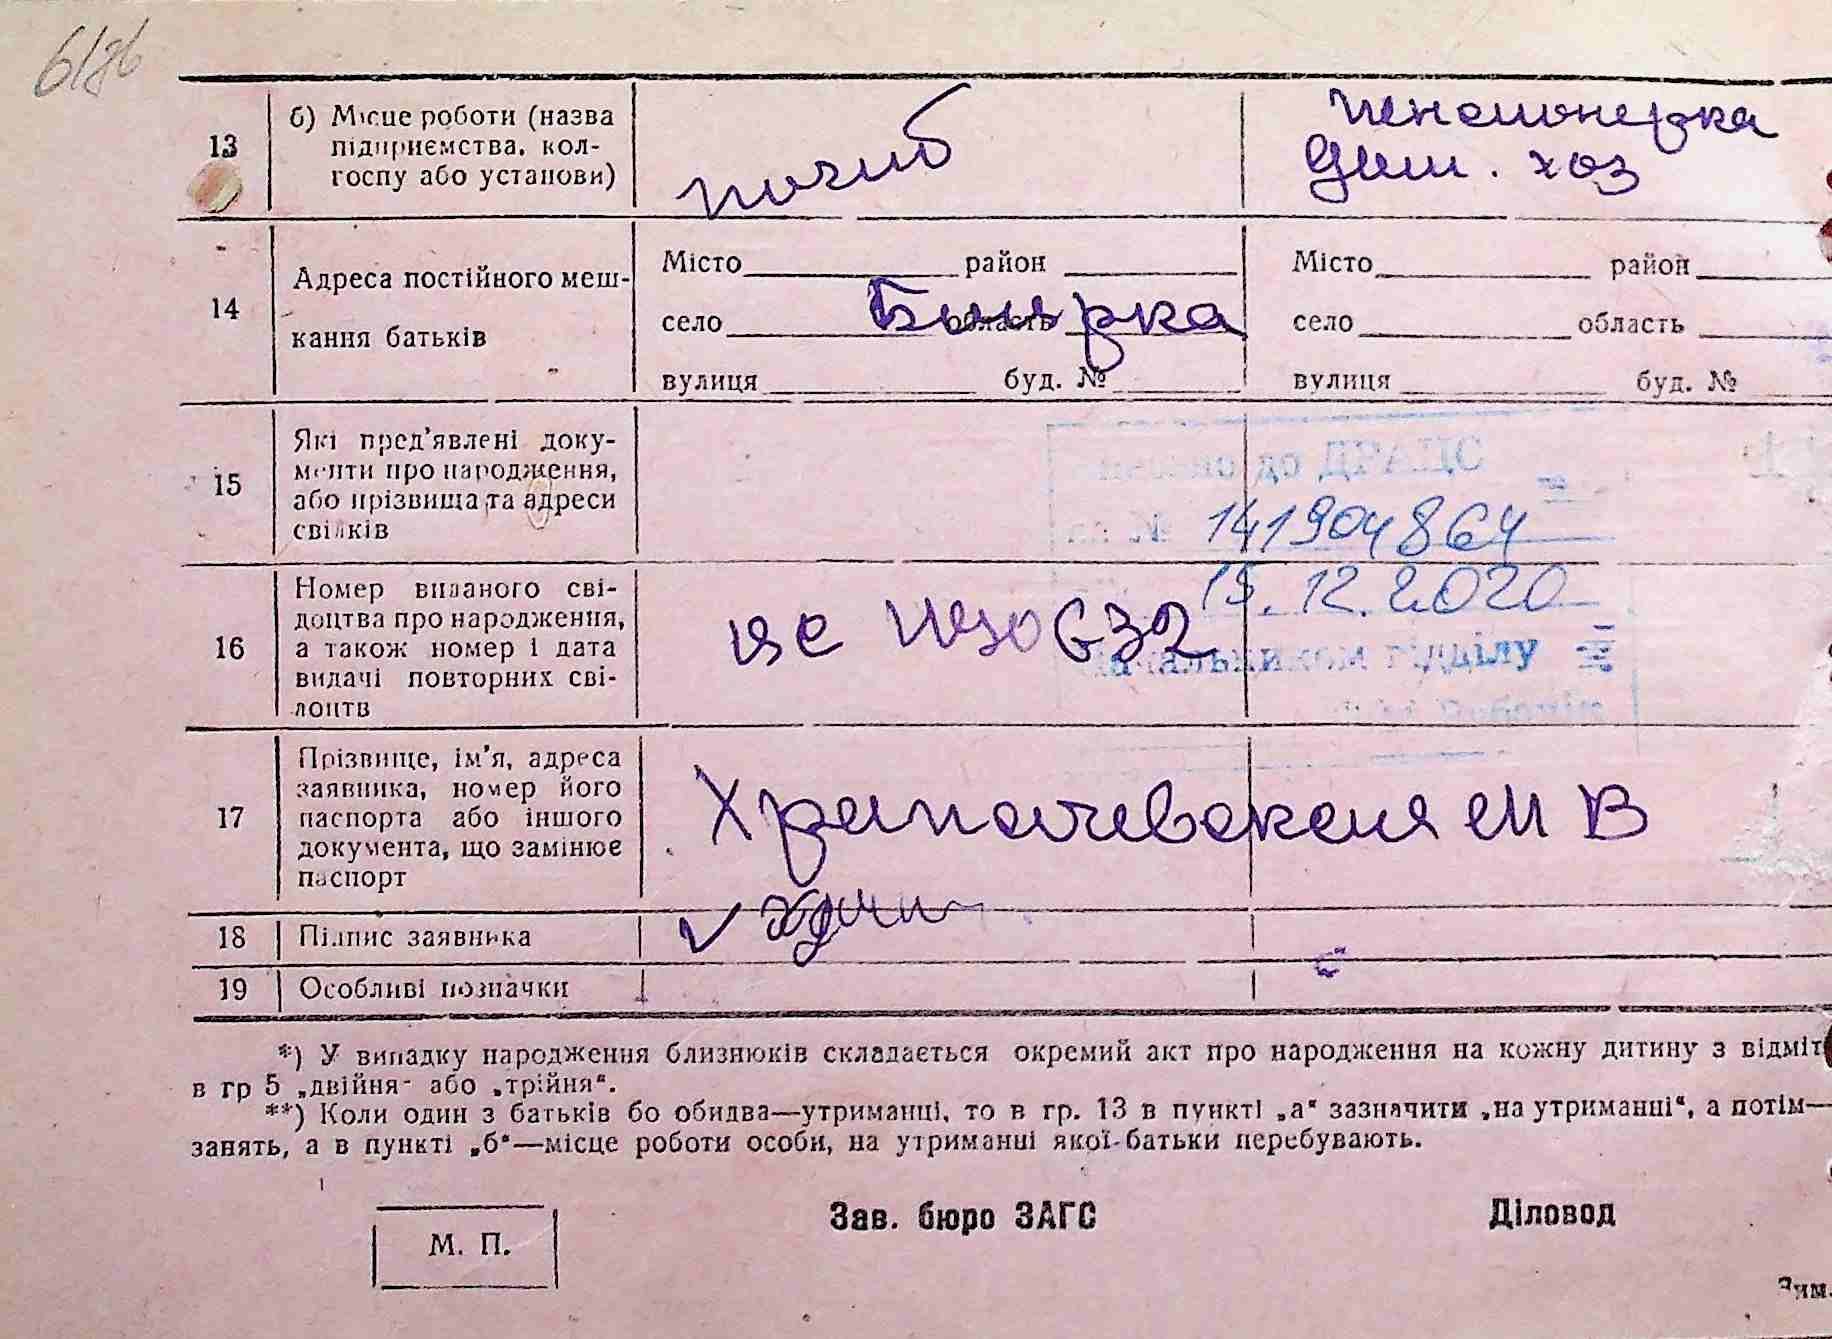 13
б) Місце роботи (назва
підприємства, кол-
госпу або установи)
погиб
пенсионерка
Дом. хоз
14
Адреса постійного меш-
кання батьків
Місто район
село область
вулиця буд. №
Боярка
Місто район
село область
вулиця буд. №
15
Які пред’явлені доку-
менти про народження,
або прізвища та адреси
свідків
до ДРАЦС
141904864
15.12.2020
Начальником відділу
16
Номер виданого сві-
доцтва про народження,
а також номер і дата
видачі повторних сві-
доцтв
17
Прізвище, ім’я, адреса
заявника, номер його
паспорта або іншого
документа, що замінює
паспорт
М В
18
Підпис заявника
19
Особливі позначки
*) У випадку народження близнюків складається окремий акт про народження на кожну дитину з відміт
в гр 5 „двійня“ або „трійня“.
**) Коли один з батьків бо обидва—утриманці, то в гр. 13 в пункті „а“ зазначити „на утриманні“, а потім—
занять, а в пункті „б“—місце роботи особи, на утриманні якої батьки перебувають.
М. П.
Зав. бюро ЗАГС
Діловод
Зим.